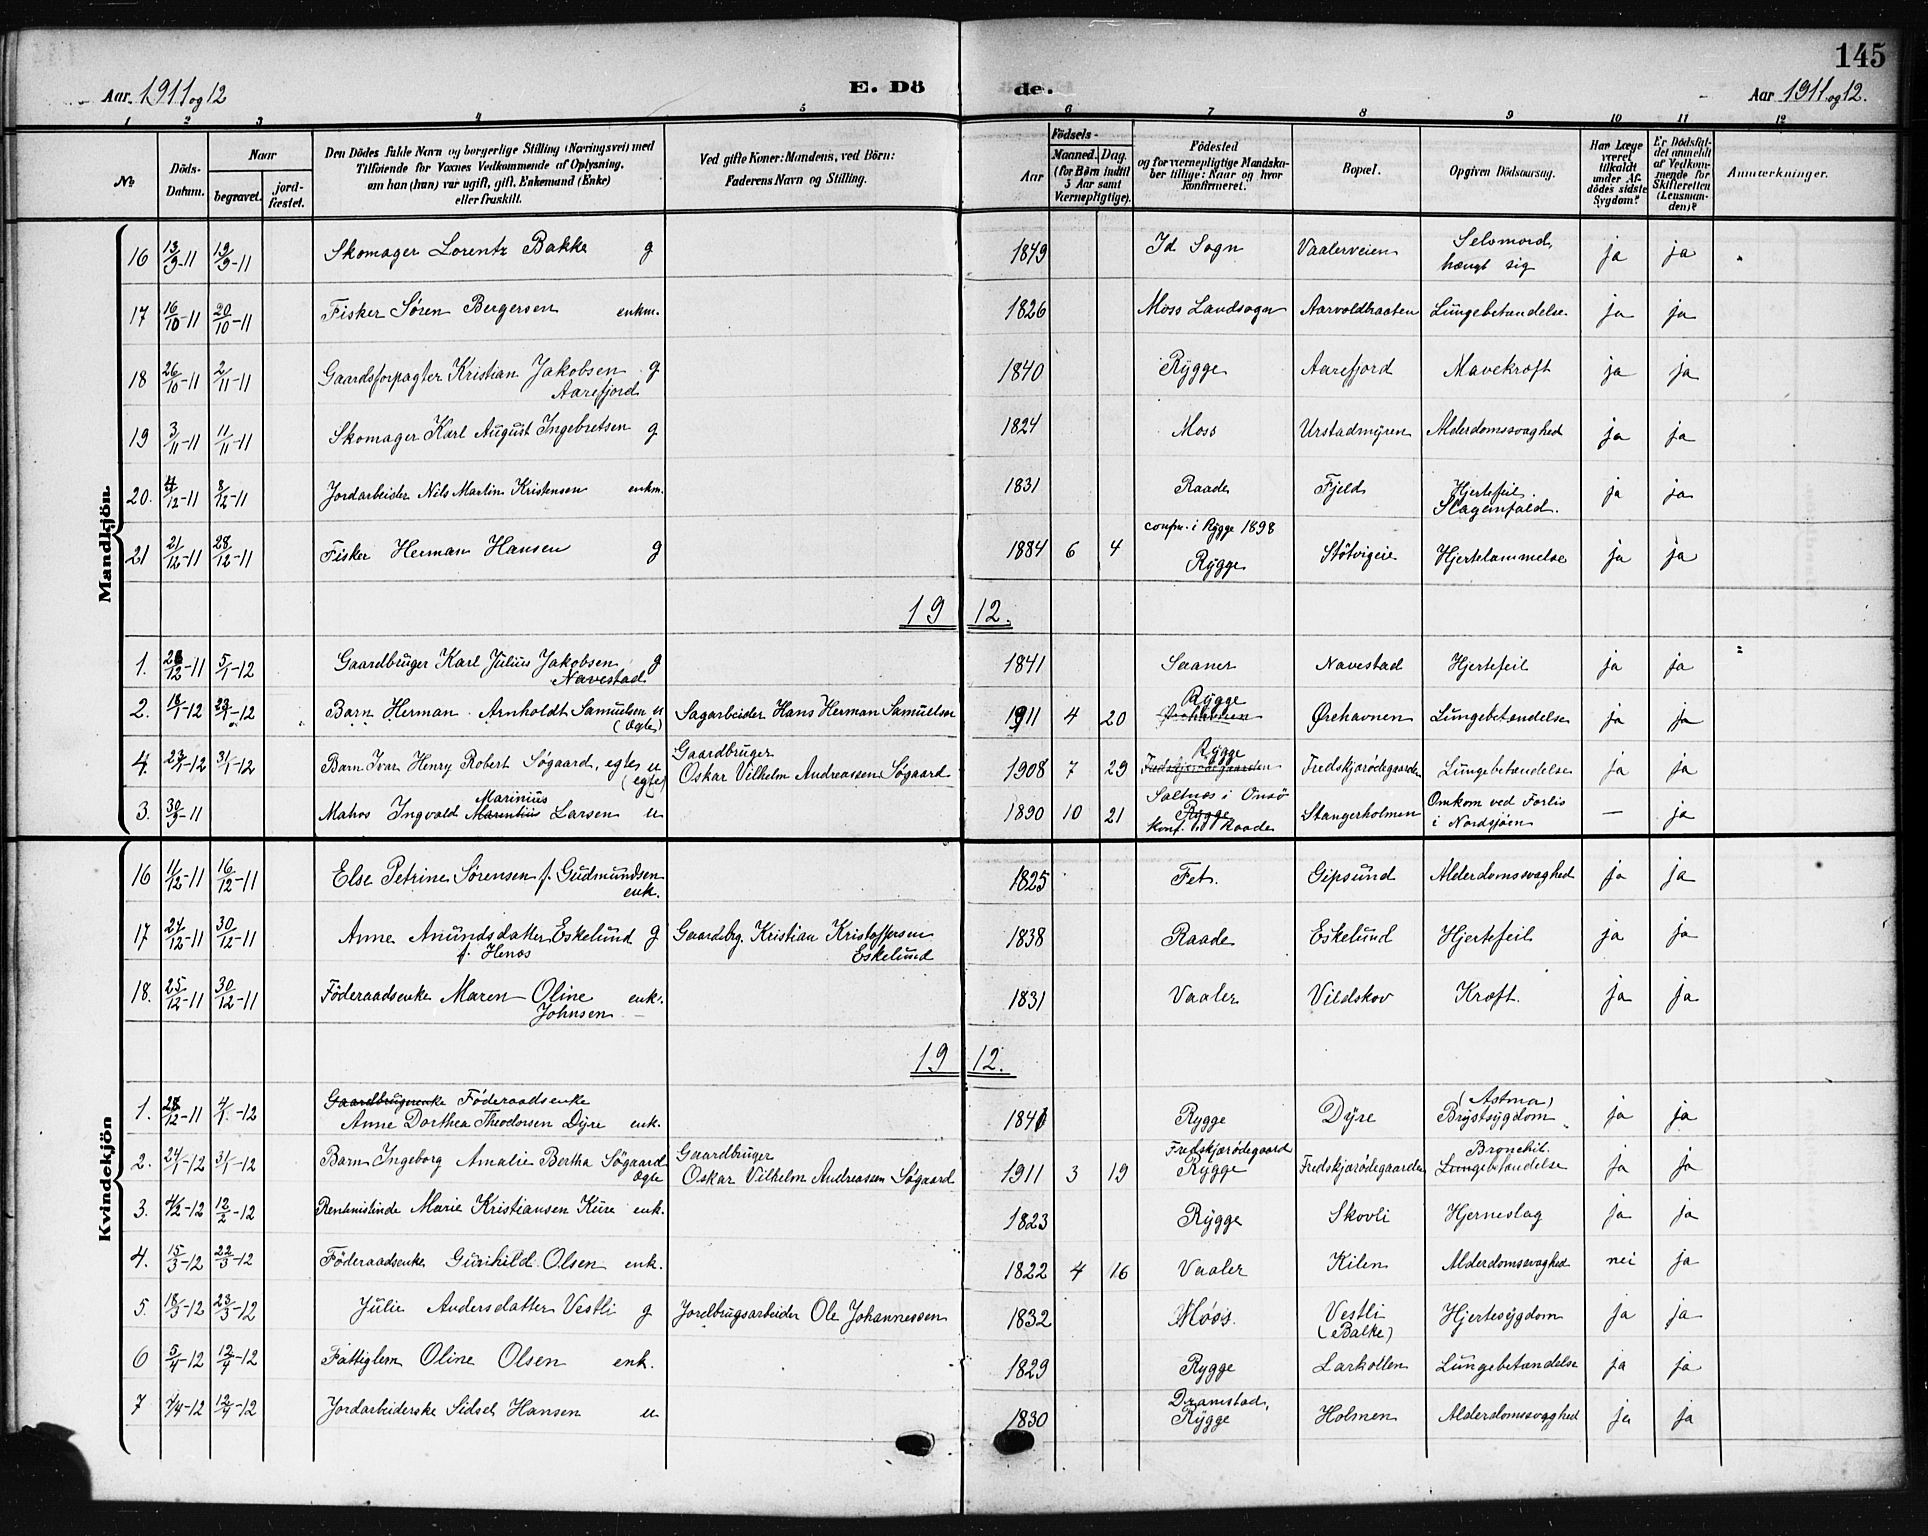 145
Aar 1911 og 12
E. Dö
de.
Aar 1911 og 12.
1 2 3 4 5 6 7 8 9 10 11 12
No
Döds-Datum.
Naar
begravet.
jord-fæstet.
Den Dödes fulde Navn og borgerlige Stilling (Næringsvei) med
Tilföiende for Voxnes Vedkommende af Oplysning,
om han (hun) var ugift, gift, Enkemand (Enke)
eller fraskilt.
Ved gifte Koner: Mandens, ved Börn:
Faderens Navn og Stilling.
Födsels-
Aar
Maaned. Dag
(for Børn indtil
5 Aar samt
Værnepligtige).
Födested
og for værnepligtige Mandska-
ber tillige: Naar og hvor
konfirmeret.
Bopæl.
Opgiven Dödsaarsag.
Har Læge
været
tilkaldt
under Af-
dödes sidste
Sygdom?
Er Dödsfal-
det anmeldt
af Vedkom-
mende for
Skifteretten
(Lensman-
den)?
Anmærkninger.
Mandkjön.
16 13/9-11 19/9-11 Skomager Lorentz Bakke g 1849 Id Sogn Vaalerveien Selvmord, hængt sig ja ja
17 16/10-11 20/10-11 Fisker Søren Bergersen enkm. 1826 Moss Landsogn Aarvoldbraaten Lungebetændelse ja ja
18 26/10-11 2/11-11 Gaardsforpagter Kristian Jakobsen g Aarefjord 1840 Rygge Aarefjord Mavekræft ja ja
19 3/11-11 11/11-11 Skomager Karl August Ingebretsen g 1824 Moss Urstadmyren Alderdomssvaghed ja ja
20. 4/12-11 8/12-11 Jordarbeider Nils Martin Kristensen enkm. 1831 Raade Fjeld Hjertefeil. Slaganfald. ja ja
21 21/12-11 28/12-11 Fisker Herman Hansen g 1884 6 4 confm. i Rygge 1898 Rygge Støtvigeie Hjertelammelse ja ja
19 12.
1. 28/12-11 5/1-12 Gaardbruger Karl Julius Jakobsen g Navestad 1841 Saaner Navestad Hjertefeil ja ja
2. 18/1-12 29/1-12 Barn Herman Arnholdt Samuelsen u (ægte) Sagarbeider Hans Herman Samuelsen 1911 4 20 Rygge Ørehavnen Ørehavnen Lungebetændelse ja ja
4. 23/1-12 31/1-12 Barn Ivar Henry Robert Søgaard, egte u (egte) Gaardbruger Oskar Vilhelm Andreassen Søgaard 1908 7 29 Rygge Fredskjærødegaarden Fredskjærødegaarden Lungebetændelse ja ja
3. 30/9-11 Matros Ingvald Marinius Marentius Larsen u 1890 10 21 Saltnes i Onsö Rygge konf. i Raade Stangerholmen Omkom ved Forlis i Nordsjøen — ja
Kvindekjön
16 11/12-11 16/12-11 Else Petrine Sørensen f. Gudmundsen enk. 1825 Fet. Gipsund Alderdomssvaghed ja ja
17 24/12-11 30/12-11 Anne Anundsdatter Eskelund g f. Henos Gaardbrg. Kristian Kristoffersen Eskelund 1838 Raade Eskelund Hjertefeil ja ja
18. 25/12-11 30/12-11 Föderaadsenke Maren Oline enk. Johnsen 1831 Vaaler Vildskov Kræft. ja ja
19 12.
1. 28/12-11 4/1-12 Gaardbrugerenke Föderaadsenke Anne Dorthea Theodorsen Dyre enk. 1841 Rygge Dyre (Astma) Brystsygdom ja ja
2. 24/1-12 31/1-12 Barn Ingeborg Amalie Bertha Søgaard ægte Gaardbruger Oskar Vilhelm Andreassen Søgaard 1911 3 19 Fredskjærødegaard Rygge Fredskjærødegaarden Bronchit. Lungebetændelse ja ja
3. 4/2-12 12/2-12 Rentenistinde Marie Kristiansen Kure enk. 1823 Rygge Skovli Hjerneslag ja ja
4. 15/3-12 22/3-12 Föderaadsenke Gunhild Olsen enk. 1822 4 16 Vaaler Kilen Alderdomssvaghed nei ja
5. 18/3-12 23/3-12 Julie Andersdatter Vestli g Jordbrugsarbeider Ole Johannessen 1832 Moss. Vestli (Balke) Hjertesygdom ja ja
6 5/4-12 12/4-12 Fattiglem Oline Olsen enk. 1829 Rygge Larkollen Lungebetændelse ja ja
7 7/4-12 12/4-12 Jordarbeiderske Sidsel Hansen u 1830 Dramstad, Rygge Holmen Alderdomssvaghed ja ja